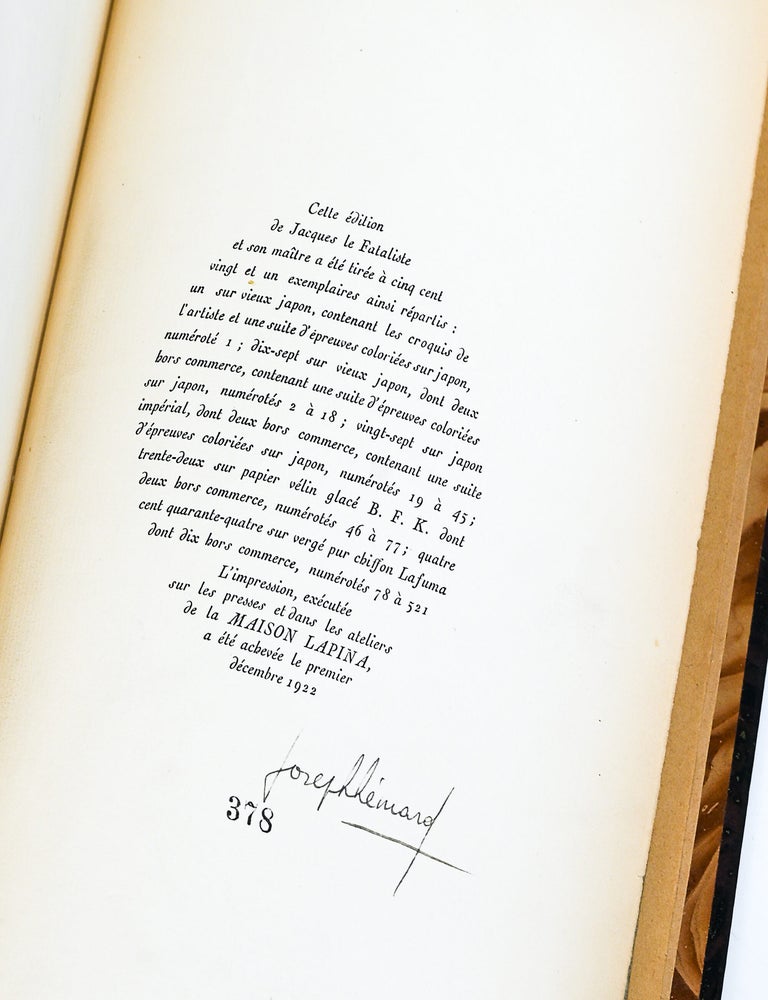 Cette édition
de Jacques le Fataliste
et son maître a été tirée à cinq cent
vingt et un exemplaires ainsi répartis :
un sur vieux japon, contenant les croquis de
l'artiste et une suite d'épreuves coloriées sur japon,
numéroté 1 ; dix-sept sur vieux japon, dont deux
hors commerce, contenant une suite d'épreuves coloriées
sur japon, numérotés 2 à 18 ; vingt-sept sur japon
impérial, dont deux hors commerce, contenant une suite
d'épreuves coloriées sur japon, numérotés 19 à 45 ;
trente-deux sur papier vélin glacé B. F. K. dont
deux hors commerce, numérotés 46 à 77 ; quatre
cent quarante-quatre sur vergé pur chiffon Lafuma
dont dix hors commerce, numérotés 78 à 521
L'impression, exécutée
sur les presses et dans les ateliers
de la MAISON LAPINA,
a été achevée le premier
décembre 1922
Joseph Hémard
378